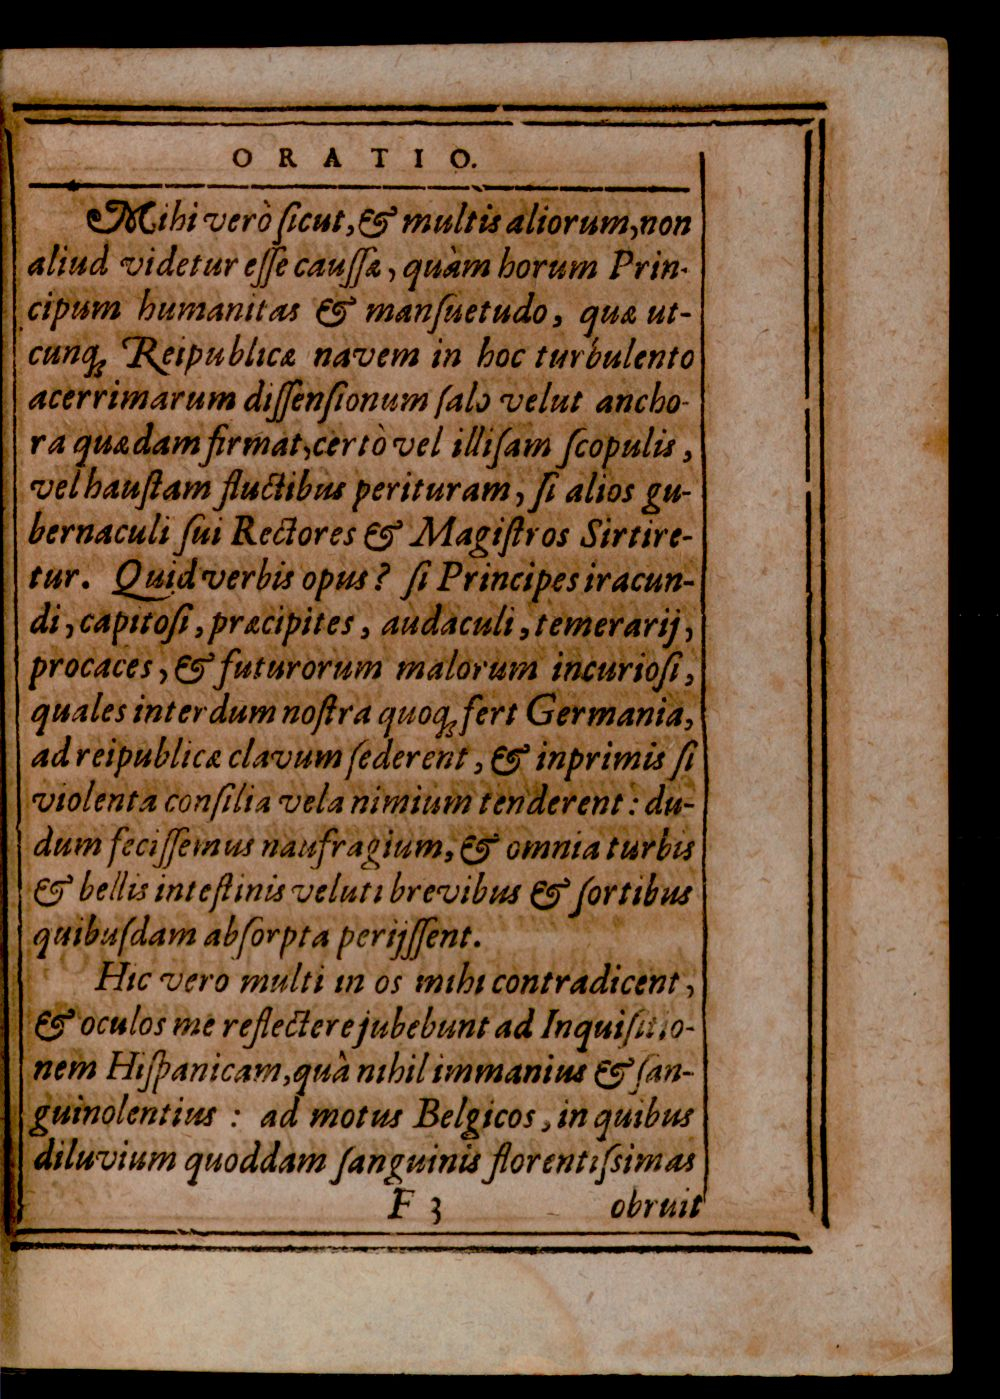 ORATIO.
Mihi verò ſicut, & multis aliorum, non
aliud videtur eſſe cauſſæ, quàm horum Prin-
cipum humanitas & manſuetudo, quæ ut-
cunq; Reipublicæ navem in hoc turbulento
acerrimarum diſſenſionum ſalo velut ancho-
ra quædam firmat, certò vel illiſam ſcopulis,
vel hauſtam fluctibus perituram, ſi alios gu-
bernaculi ſui Rectores & Magiſtros Sirtire-
tur. Quid verbis opus? ſi Principes iracun-
di, capitoſi, præcipites, audaculi, temerarij,
procaces, & futurorum malorum incurioſi,
quales interdum noſtra quoq; fert Germania,
ad reipublicæ clavum ſederent, & inprimis ſi
violenta conſilia vela nimium tenderent: du-
dum feciſſemus naufragium, & omnia turbis
& bellis inteſtinis veluti brevibus & ſortibus
quibuſdam abſorpta perijſſent.
Hic vero multi in os mihi contradicent,
& oculos me reflectere jubebunt ad Inquiſitio-
nem Hiſpanicam, quà nihil immanius & ſan-
guinolentius: ad motus Belgicos, in quibus
diluvium quoddam ſanguinis florentiſsimas
F 3 obruit